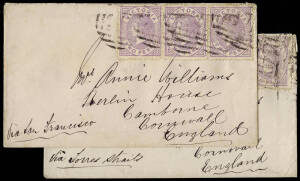 Mrs Annie Williams
Berlin House
Camborne
Cornwall
England
via San Francisco
via Torres Straits
Cornwall
England